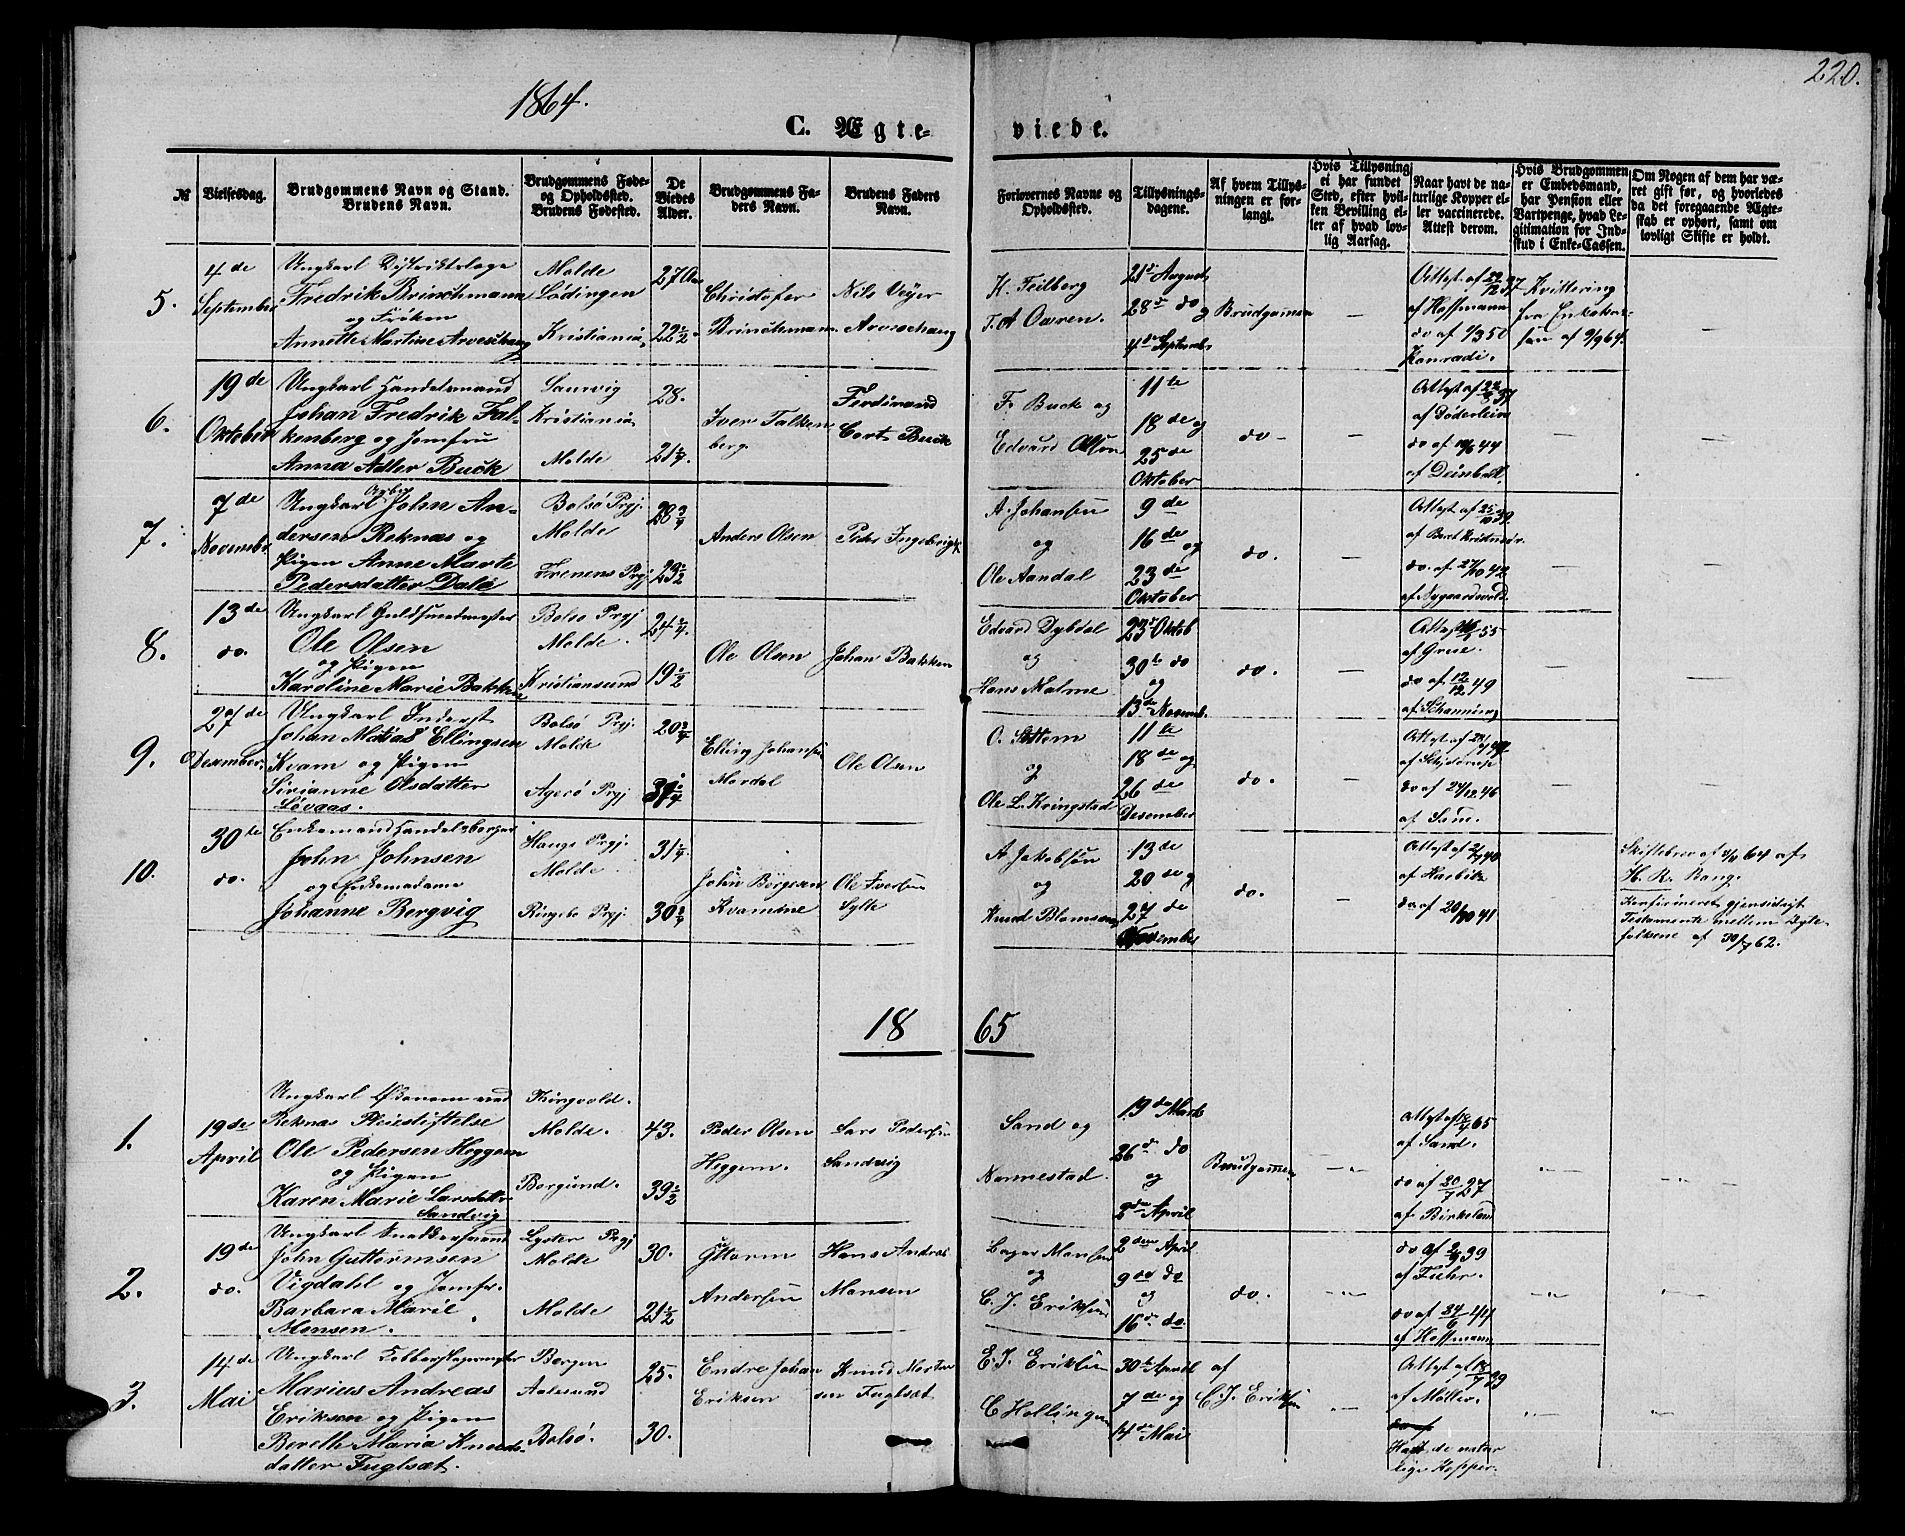 220.
1864.
C. Ægte-
viede.
№
Vielsesdag.
Brudgommens Navn og Stand.
Brudens Navn.
Brudgommens Føde-
og Opholdssted.
Brudens Fødested.
De
Viedes
Alder.
Brudgommens Fa-
ders Navn.
Brudens Faders
Navn.
Forlovernes Navne og
Opholdssted.
Tillysnings-
dagene.
Af hvem Tillys-
ningen er for-
langt.
Hvis Tillysning
ei har fundet
Sted, efter hvil-
ken Bevilling el-
ler af hvad lov-
lig Aarsag.
Naar havt de na-
turlige Kopper el-
ler vaccinerede.
Attest derom.
Hvis Brudgommen
er Embedsmand,
har Pension eller
Vartpenge, hvad Le-
gitimation for Ind-
skud i Enke-Cassen.
Om Nogen af dem har væ-
ret gift før, og hvorledes
da det foregaaende Ægte-
skab er ophørt, samt om
lovligt Skifte er holdt.
5.
4de
September
Ungkarl Distriktslæge
Fredrik Brinchmann
og Frøken
Annette Martine Arveschoug
Molde
Lødingen
Kristiania
27 Aar
22½
Christofer
Brinchmann
Nils Vejer
Arveschoug
H. Feilberg
T. A. Owren.
21de August
28de do og
4de Septemb.
Brudgommen
—
Attest af 22/12 37
af Hoffmann
do af 1/3 50
Konradi.
Kvittering
fra Enkekas-
sen af 9/9 64.
6.
19de
Oktober
Ungkarl Handelsmand
Johan Fredrik Fal-
kenberg og Jomfru
Anna Adler Buck
Laurvig
Kristiania
Molde
28.
21¼
Iver Falken
berg
Ferdinand
Cort Buck
F. Buck og
Edvard Olsen
11te
18de og
25de
Oktober
do —
—
af Døderlein
af Deinboll
—
—
7.
7de
November
Ungkarl John An-
dersen Reknæs og
Pigen Anne Marte
Pedersdatter Dale
Bolsø Prgj.
Molde
Frenens Prgj
28¾
23½
Anders Olsen
Peder Ingebrigts.
A. Johansen
og
Ole Aandal
9de
16de og
23de
Oktober
do.
—
Attest af 25/10 39
do. af 27/10 42
af Nygaardsvold.
—
—
8.
13de
do.
Ungkarl Guldsmedmester
Ole Olsen
og Pigen
Karoline Marie Bakken
Bolsø Prgj
Molde.
Kristiansund
24¾
19½
Ole Olsen
Johan Bakken
Edvard Dybdal
og
Hans Malme
23de Oktob
30te do
og
13de Novemb.
do.
—
af Grue.
do af 12/12 49
af Schanning
—
—
9.
27de
Desember.
Ungkarl Inderst
Johan Matias Ellingsen
Kvam og Pigen
Sirianne Olsdatter
Løvaas.
Bolsø Prgj.
Molde
Agerø Prgj
20¾
31¼
Elling Johansen
Mordal
Ole Olsen
O. Sottem
og
Ole L. Kringstad
11te
18de og
26de
Desember
do.
—
do af 24/12 46
af Sam.
—
—
10.
30te
do.
Enkemand Handelsborger
John Johnsen
og Enkemadame
Johanne Bergvig
Haugs Prgj.
Molde.
Ringebo Prgj.
31¼
30¾
John Børgesen
Kvamme
Ole Iversen
Sylte
A. Jakobsen
og
Knud Blomsen
13de
20de og
27de
November
do.
—
af Harbitz
do af 20/10 41
—
Skiftebrev af 3/8 64 af
H. R. Bang.
Konfirmeret gjensidigt
Testamente mellem Ægte-
folkene af 30/7 62.
18
65
1.
19de
April
Ungkarl Økonom ved
Reknæs Pleiestiftelse
Ole Pedersen Heggem
og Pigen
Karen Marie Larsdatter
Sandvig
Tingvold.
Molde.
Borgund.
43.
39½
Peder Olsen
Heggem.
Lars Pedersen
Sandvig
Sand og
Nørmestad.
19de Marts
26de do
og
2den April
Brudgommen
—„—
Attest af 12/4 65
af Sand.
do af 20/7 27
af Birkeland
—„—
—„—
2.
19de
do.
Ungkarl Snedkersvend
John Guttormsen
Vigdahl og Jomfr.
Barbara Marie
Monsen.
Lyster Prgj
Molde
Molde
30.
21½
Guttorm
Andersen
Hans Andreas
Monsen
C. J. Eriksen
og
2den April
9de do
og
16de do.
do.
—„—
do af 2/9 39
af Fuhr.
do af 24/6 44
af Hoffmann
—„—
—„—
3.
14de
Mai
Ungkarl Kobberslagermester
Marius Andreas
Eriksen og Pigen
Bereth Maria Knuds-
datter Fuglsæt.
Bergen
Aalesund
Bolsø.
25.
30.
Endre Johan
Eriksen
Knud Morten
sen Fuglsæt
E. J. Eriksen
C. Hollingen
30te April
7de og
14de Mai
af
C. J. Eriksen
—„—
Attest af 18/7 39
af Møller.
do af
Havt de natur
lige Kopper.
—„—
—„—